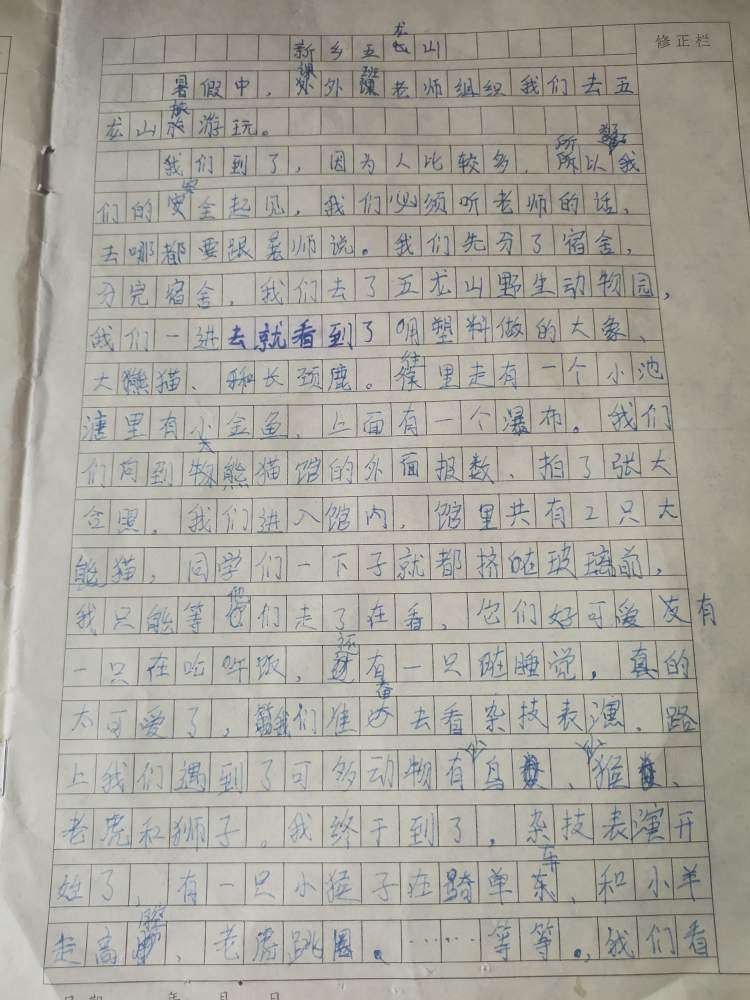 新乡五龙山
修正栏
暑假中，课外班老师组织我们去五
龙山旅游玩。
我们到了，因为人比较多，所以我
们的安全起见，我们必须听老师的话，
去哪都要跟老师说。我们先分了宿舍，
分完宿舍，我们去了五龙山野生动物园，
我们一进去就看到了用塑料做的大象、
大熊猫、和长颈鹿。往里走有一个小池
塘里有小金鱼，上面有一个瀑布。我们
们向到大熊猫馆的外面报数，拍了张大
合照。我们进入馆内，馆里共有2只大
熊猫，同学们一下子就都挤在玻璃前，
我只能等他们走了在看，它们好可爱友有
一只在吃午饭，还有一只在睡觉，真的
太可爱了，我们准备去看杂技表演，路
上我们遇到了可多动物有鸟、猴、
老虎和狮子，我终于到了，杂技表演开
始了，有一只小猴子在骑单车，和小羊
走高，老虎跳圈。……等等。我们看
日期 年 月 日